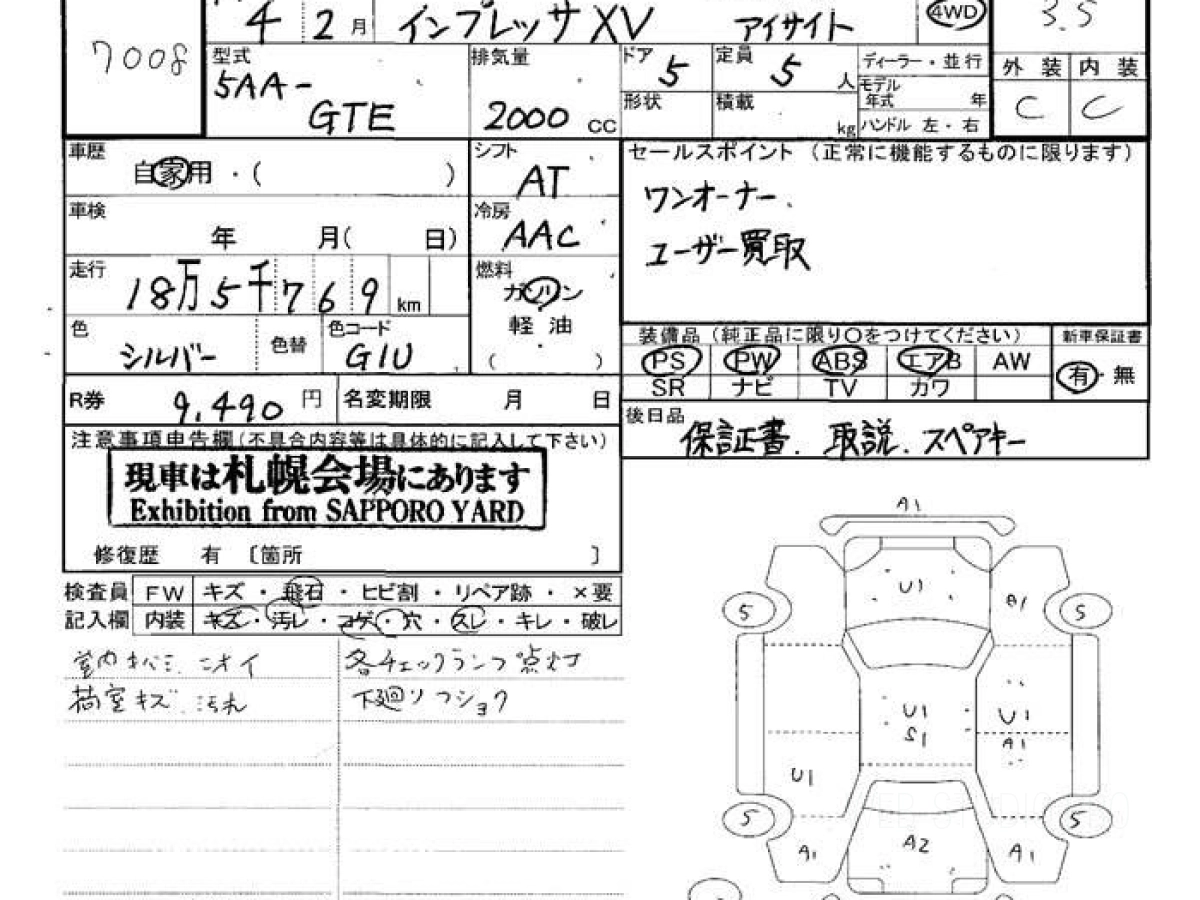 7008
4 2月 インプレッサXV アイサイト 4WD 3.5
型式 5AA-
GTE
排気量 2000 cc
ドア 5 定員 5 人 ディーラー・並行
形状 積載 kg モデル年式 年
ハンドル 左・右
外装 内装
C C
車歴 自家用・( )
シフト AT
車検 年 月( 日)
冷房 AAC
走行 18万5千769km
燃料 ガソリン
軽油
( )
色 シルバー 色替 色コード G1U
セールスポイント(正常に機能するものに限ります)
ワンオーナー、
ユーザー買取
装備品(純正品に限り○をつけてください) 新車保証書
PS PW ABS エアB AW 有・無
SR ナビ TV カワ
R券 9,490円 名変期限 月 日
後日品 保証書、取説、スペアキー
注意事項申告欄(不具合内容等は具体的に記入して下さい)
現車は札幌会場にあります
Exhibition from SAPPORO YARD
修復歴 有 〔箇所 〕
検査員 FW キズ・飛石・ヒビ割・リペア跡・×要
記入欄 内装 キズ・汚レ・コゲ・穴・スレ・キレ・破レ
室内キバミ、ニオイ 各チェックランプ点灯
荷室キズ、汚れ 下廻ソフショク
A1
U1
5 A1 5
U1 U1
S1 A1
U1
5 5
A1 A2 A1